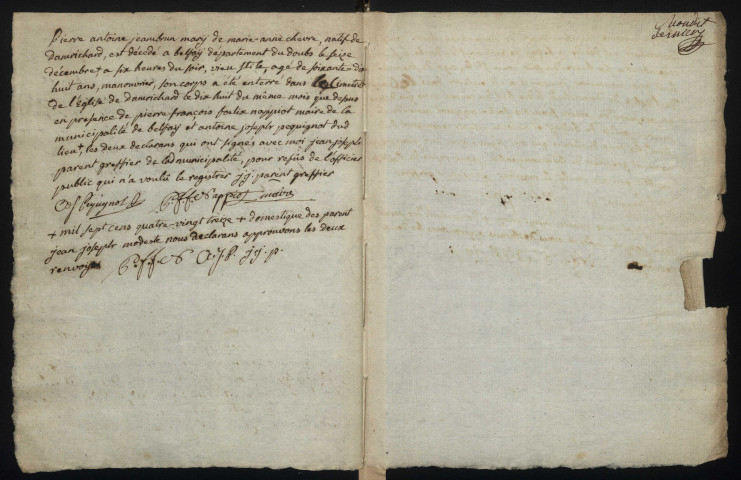 Pierre antoine jeambrun mary de marie-anne chevre, natif de
damrichard, est décédé a belfay département du doubs le seize
décembre + a six heures du soir, agé de soixante-dix
huit ans, manouvrier, son corps a été enterré dans le Cimetier
de l'église de damrichard le dix huit du même mois que dessus
en presence de pierre françois foelix nappiot maire de la
municipalité de belfay et antoine joseph pequignot dud
lieu, les deux declarans qui ont signés avec moi jean joseph
parent greffier de lad municipalité, pour refus de l'officier
public qui n'a voulu le registrer jj parent greffier
aj pequignot pffNappiot maire
+ mil sept cens quatre-vingt treize + domestique des parent
jean joseph modeste nous declarans approuvons les deux
renvoys pffN a.j.p. jj. p.